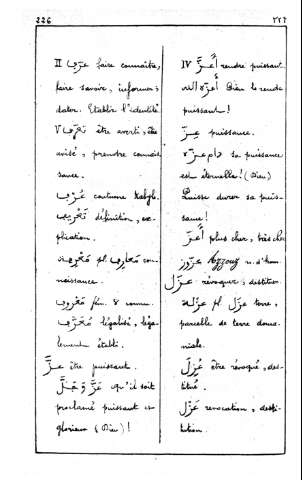 226
٢٢٦
II عرّف faire connaître,
faire savoir, informer;
dater. Etablir l'identité
V تعرّف être averti, être
avisé, prendre connais
sance.
عُرْف coutume Kabyle.
تَعْرِيف définition, ex-
plication.
مَعْرِفة pl. مَعَارِف con-
naissance.
مَعْرُوف fém. ة connu.
légalisé, léga-
lement établi.
عَزَّ être puissant.
عَزَّ وَجَلَّ qu'il soit
proclamé puissant et
glorieux (Dieu)!
IV أَعَزَّ rendre puissant
أَعَزّه الله Dieu le rende
puissant!
عِزّ puissance.
دام عزّه sa puissance
est éternelle! (Dieu)
Puisse durer sa puis-
sance!
أَعَزّ plus cher, très cher
عزّوز Azzouz n. d'hom.
عزل révoquer; destituer.
عزلة pl. عزل terre,
parcelle de terre doma
niale.
عُزِلَ être révoqué, des-
titué.
عَزْل revocation; desti-
tution.